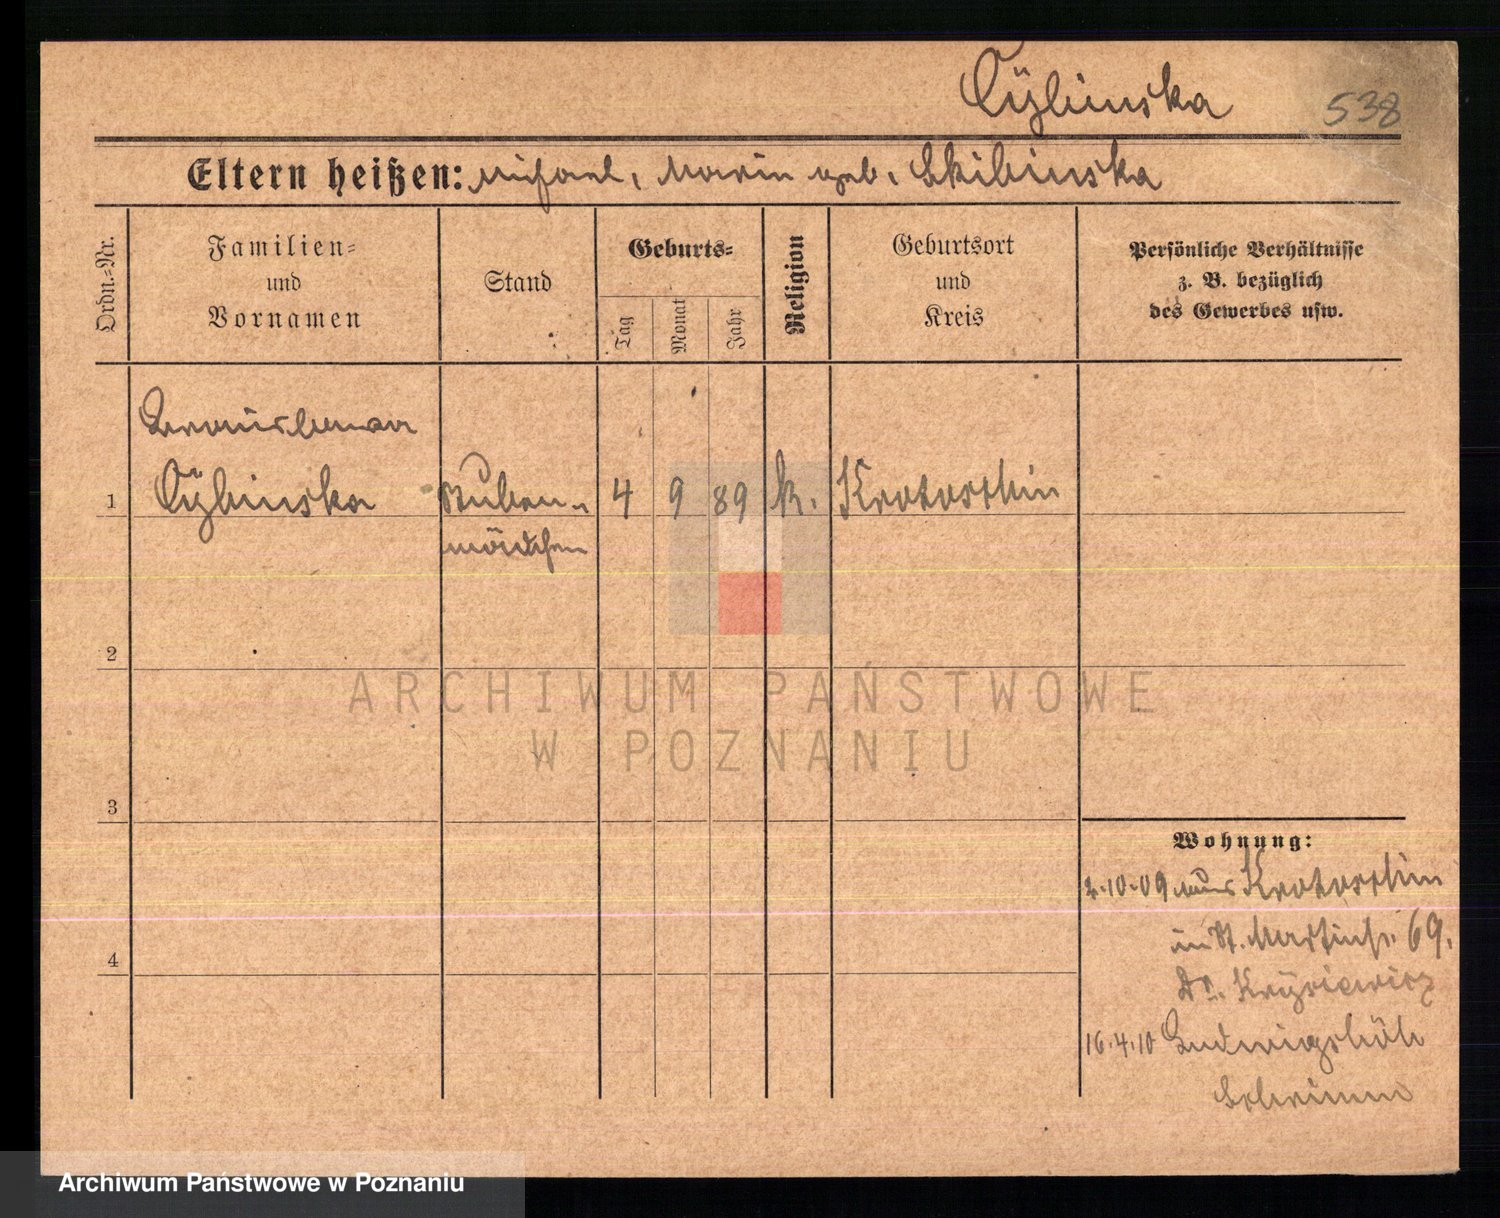 Cÿbinska
538
Eltern heißen: Michael, Marie geb. Skibinska
Ordn.=Nr.
Familien=
und
Vornamen
Stand
Geburts=
Tag
Monat
Jahr
Religion
Geburtsort
und
Kreis
Persönliche Verhältnisse
z. B. bezüglich
des Gewerbes usw.
Bronislawa
1 Cÿbinska Stuben- 4 9 89 k. Krotoschin
mädchen
2
3
4
Wohnung:
2.10.09 aus Krotoschin
in St. Martinstr. 69.
Dr. Krysiewicz
16.4.10 Ludwigshöh
Schrimm
ARCHIWUM PAŃSTWOWE
W POZNANIU
Archiwum Państwowe w Poznaniu